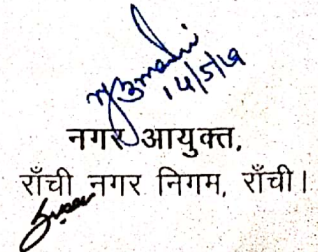 14/5/19
नगर आयुक्त,
राँची नगर निगम, राँची।